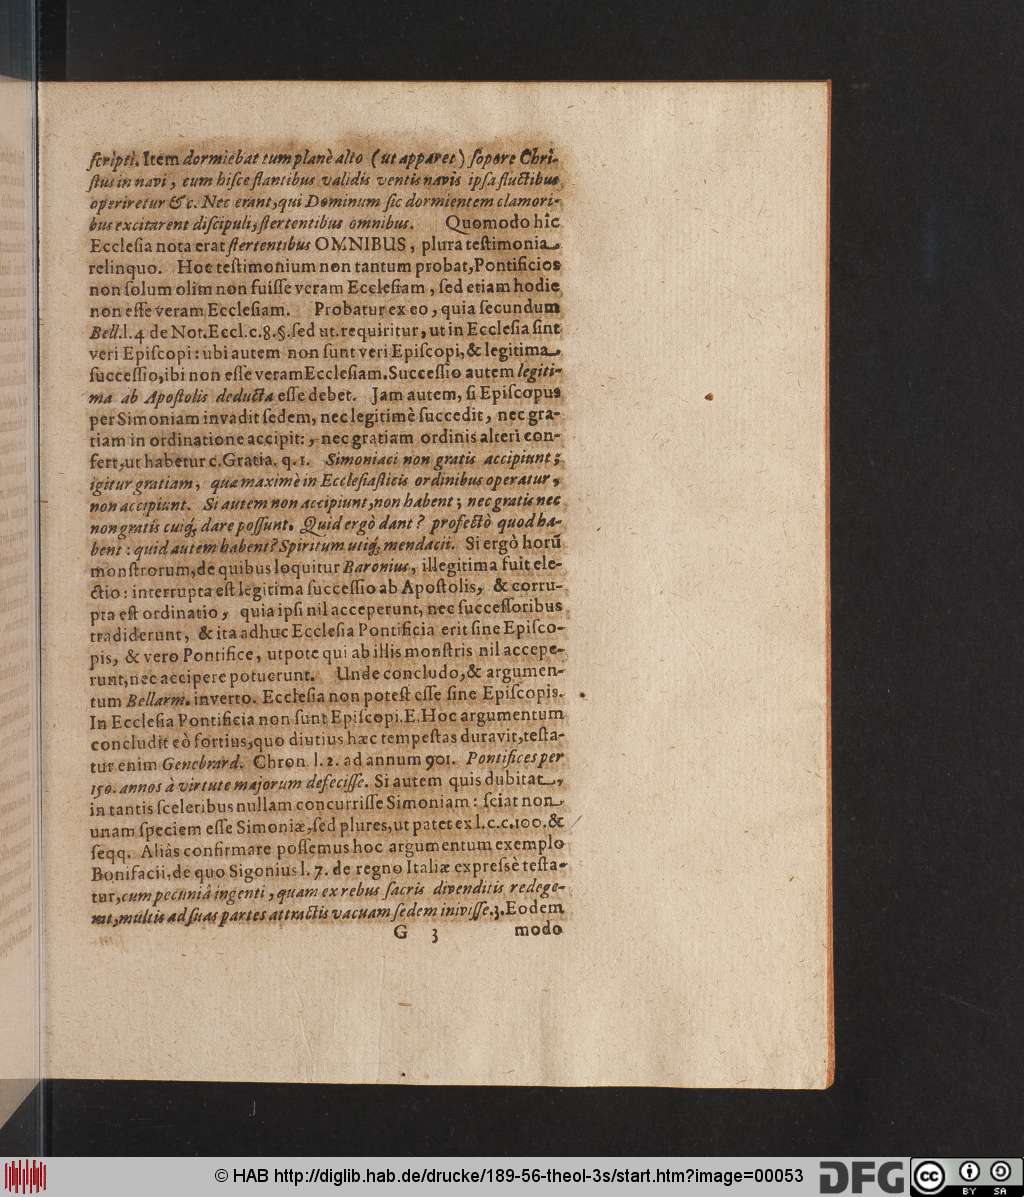 ſcripti. Item dormiebat tum planè alto (ut apparet) ſopore Chri-
ſtus in navi, cum hiſce flantibus validis ventis navis ipſa fluctibus
operiretur &c. Nec erant, qui Dominum ſic dormientem clamori-
bus excitarent diſcipuli, ſtertentibus omnibus. Quomodo hîc
Eccleſia nota erat ſtertentibus OMNIBUS, plura teſtimonia
relinquo. Hoc teſtimonium non tantum probat, Pontificios
non ſolum olim non fuiſſe veram Eccleſiam, ſed etiam hodie
non eſſe veram Eccleſiam. Probatur ex eo, quia ſecundum
Bell. l. 4 de Not. Eccl. c. 8. §. ſed ut. requiritur, ut in Eccleſia ſint
veri Epiſcopi: ubi autem non ſunt veri Epiſcopi, & legitima
ſucceſſio, ibi non eſſe veram Eccleſiam. Succeſſio autem legiti-
ma ab Apoſtolis deducta eſſe debet. Jam autem, ſi Epiſcopus
per Simoniam invadit ſedem, nec legitimè ſuccedit, nec gra-
tiam in ordinatione accipit:, nec gratiam ordinis alteri con-
fert, ut habetur c. Gratia. q. 1. Simoniaci non gratis accipiunt;
igitur gratiam, quæ maximè in Eccleſiaſticis ordinibus operatur,
non accipiunt. Si autem non accipiunt, non habent; nec gratis nec
non gratis cuiq; dare poſſunt. Quid ergò dant? profectò quod ha-
bent: quid autem habent? Spiritum utiq; mendacii. Si ergò horũ
monſtrorum, de quibus loquitur Baronius, illegitima fuit ele-
ctio: interrupta eſt legitima ſucceſſio ab Apoſtolis, & corru-
pta eſt ordinatio, quia ipſi nil acceperunt, nec ſucceſſoribus
tradiderunt, & ita adhuc Eccleſia Pontificia erit ſine Epiſco-
pis, & vero Pontifice, utpote qui ab illis monſtris nil accepe-
runt, nec accipere potuerunt. Unde concludo, & argumen-
tum Bellarm. inverto. Eccleſia non poteſt eſſe ſine Epiſcopis.
In Eccleſia Pontificia non ſunt Epiſcopi. E. Hoc argumentum
concludit eò fortius, quo diutius hæc tempeſtas duravit, teſta-
tur enim Genebrard. Chron. l. 2. ad annum 901. Pontifices per
150. annos à virtute majorum defeciſſe. Si autem quis dubitat,
in tantis ſceleribus nullam concurriſſe Simoniam: ſciat non
unam ſpeciem eſſe Simoniæ, ſed plures, ut patet ex l. c. c. 100. &
ſeqq. Aliàs confirmare poſſemus hoc argumentum exemplo
Bonifacii, de quo Sigonius l. 7. de regno Italiæ expreſsè teſta-
tur, cum pecuniâ ingenti, quam ex rebus ſacris divenditis redege-
rat, multis ad ſuas partes attractis vacuam ſedem iniviſſe. 3. Eodem
G 3 modo
© HAB http://diglib.hab.de/drucke/189-56-theol-3s/start.htm?image=00053
DFG
cc BY SA